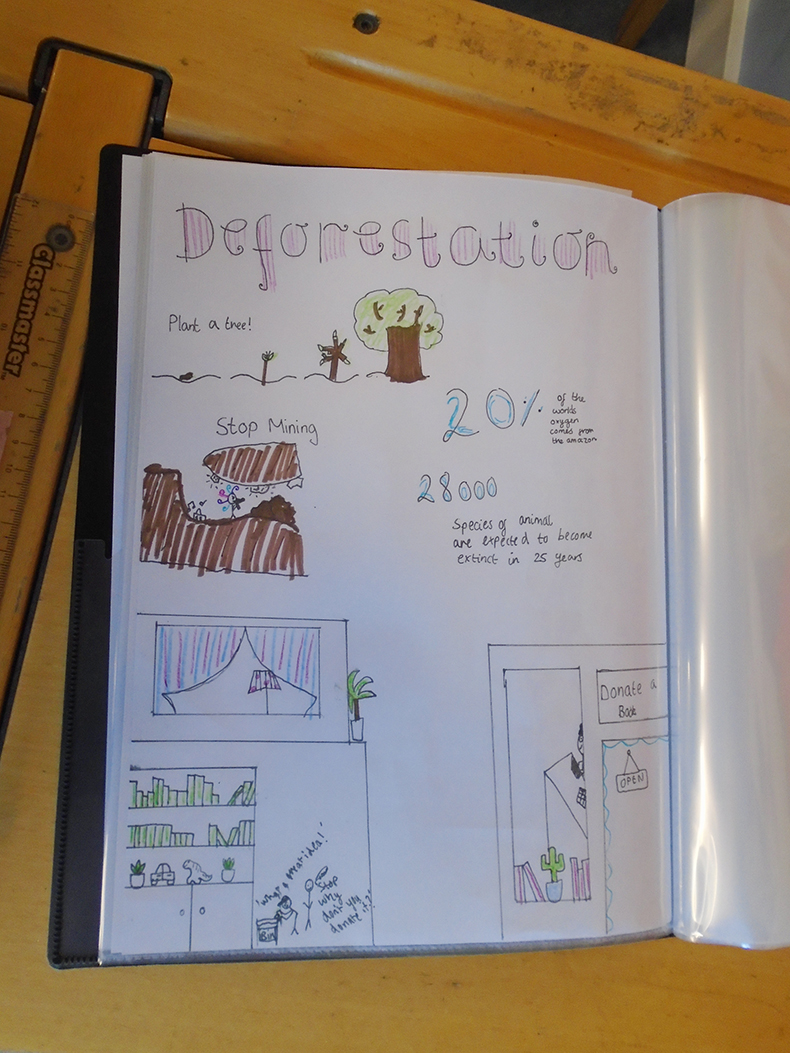 Deforestation
Classmaster
Plant a tree!
20%
of the
worlds
oxygen
comes from
the amazon
Stop Mining
28000
Species of animal
are expected to become
extinct in 25 years
Donate a
Book
OPEN
'What a great idea!'
Stop
why
don't you
donate it?'
Bin